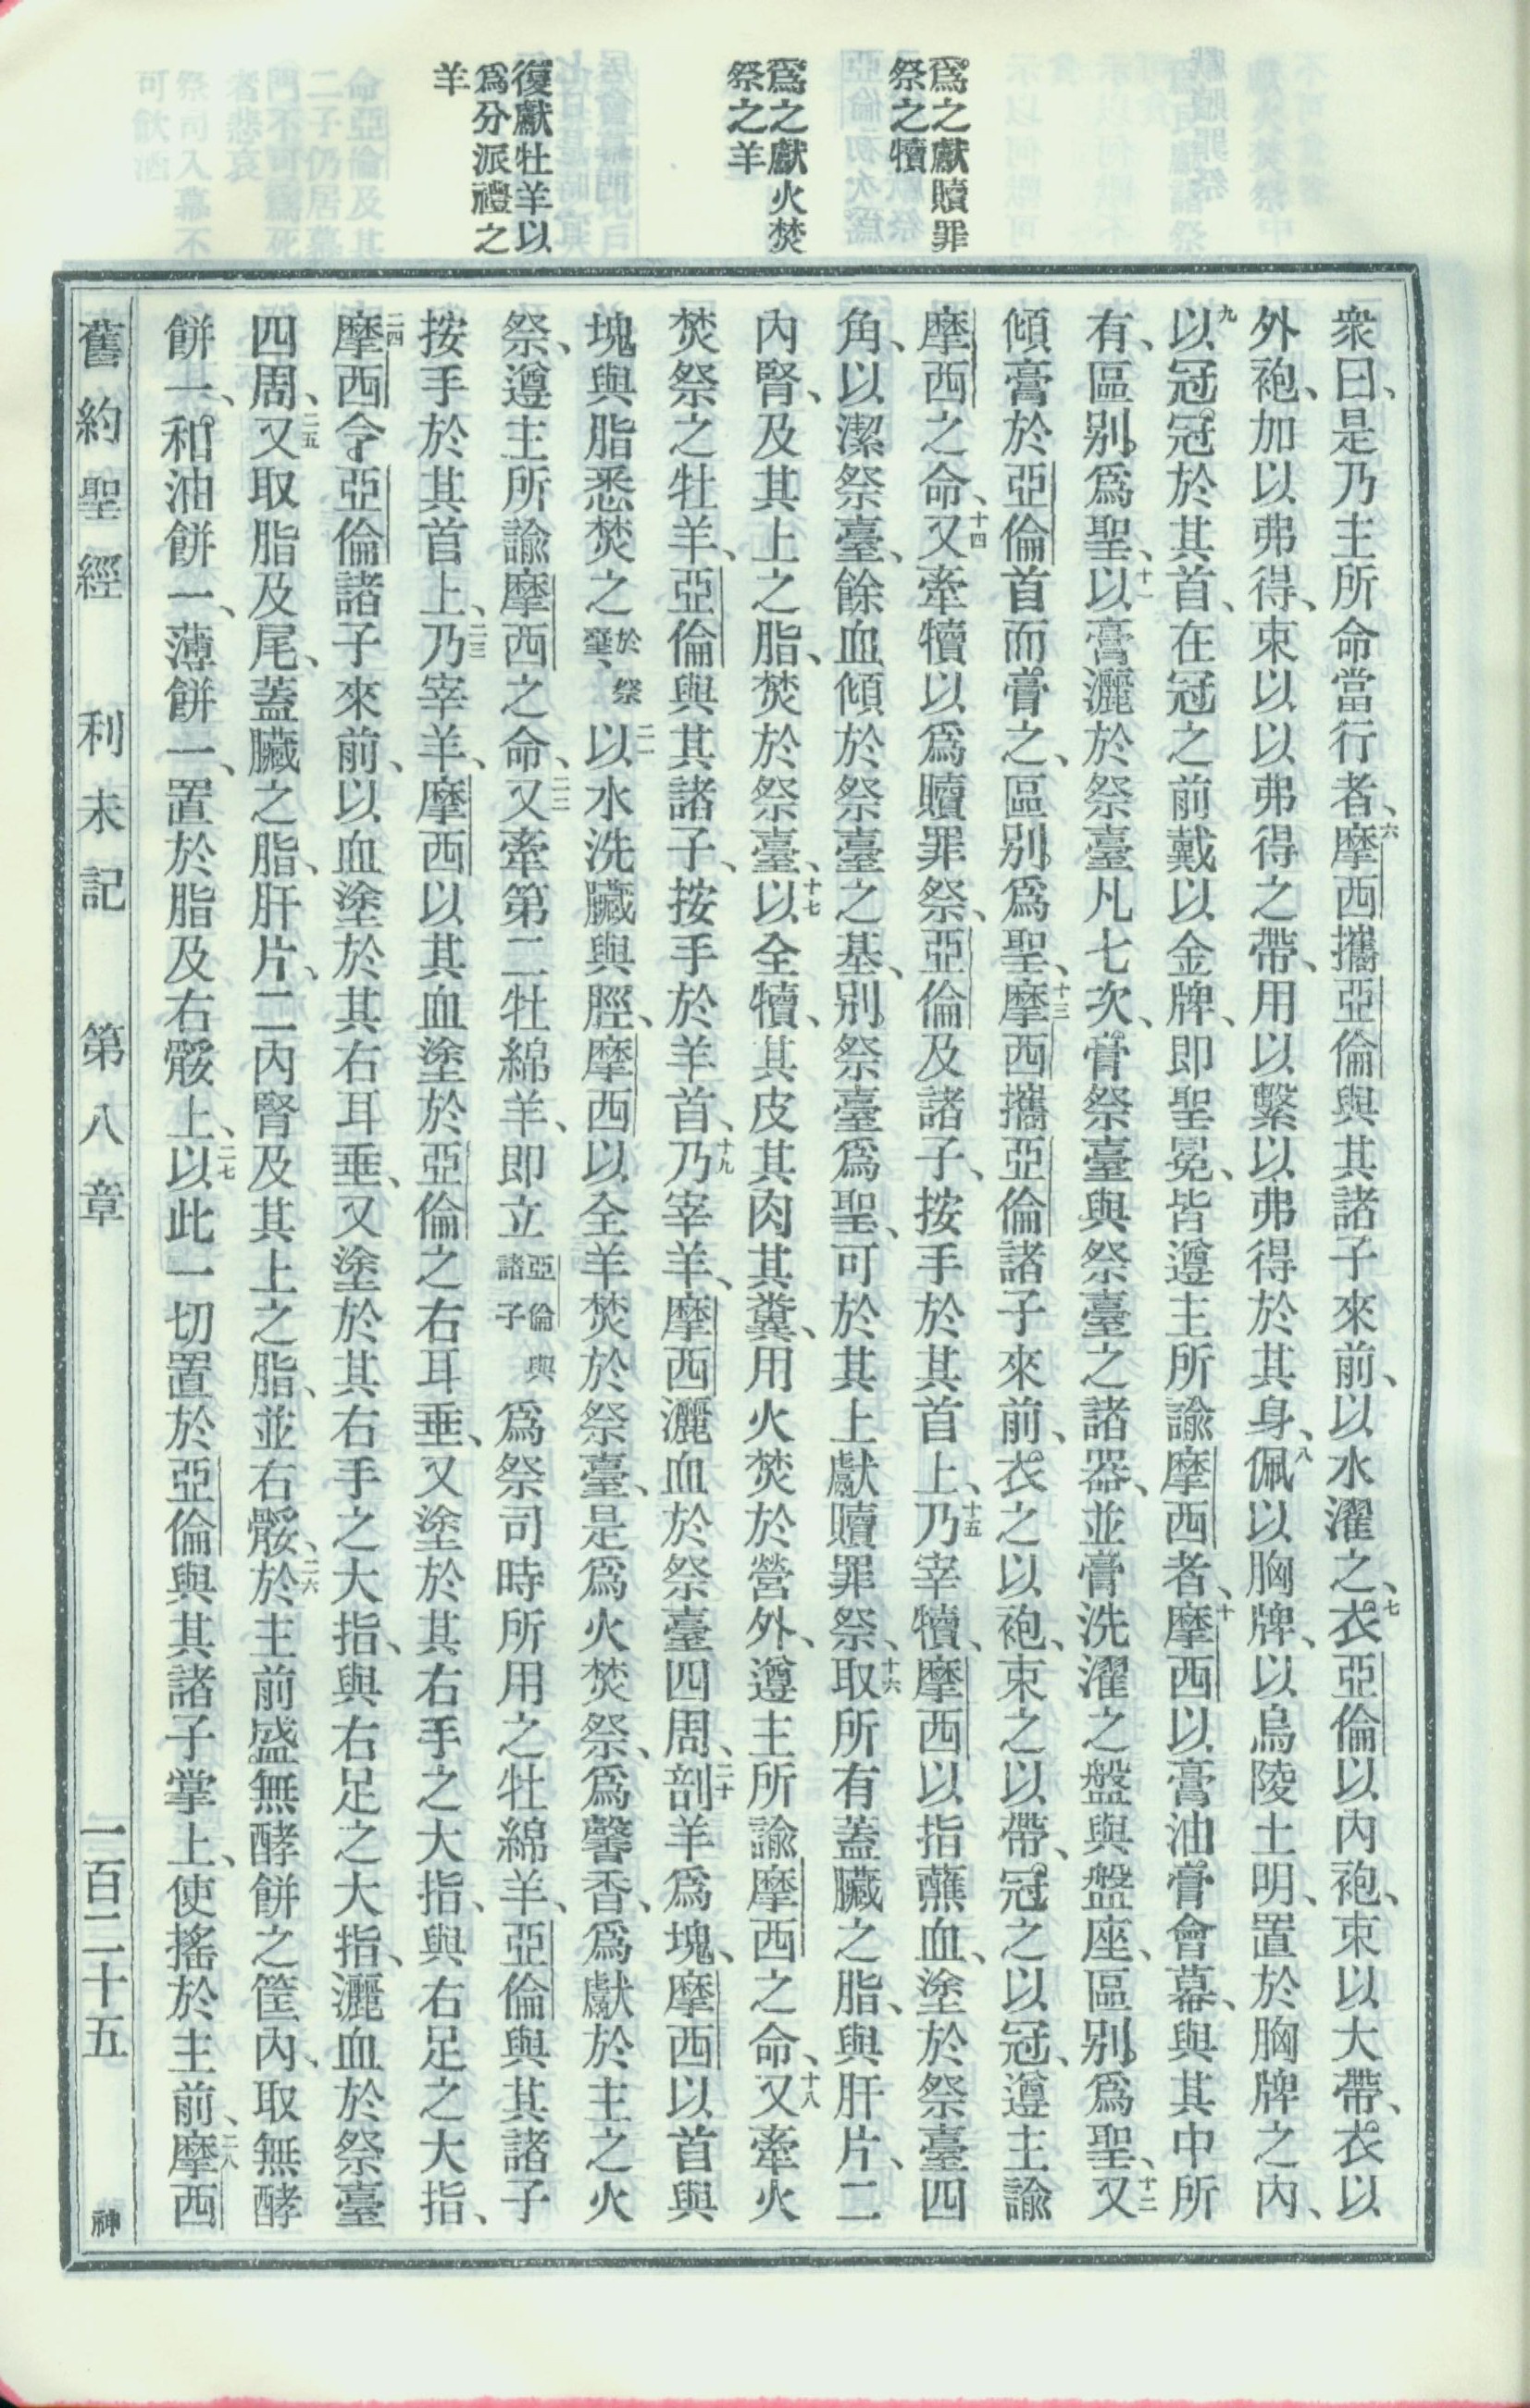 爲之獻贖罪
祭之犢
爲之獻火焚
祭之羊
復獻牡羊以
爲分派禮之
羊
衆曰、是乃主所命當行者、六摩西攜亞倫與其諸子來前、以水濯之、七衣亞倫以內袍、束以大帶、衣以
外袍、加以弗得、束以以弗得之帶、用以繫以弗得於其身、八佩以胸牌、以烏陵土明、置於胸牌之內、
九以冠冠於其首、在冠之前戴以金牌、即聖冕、皆遵主所諭摩西者、十摩西以膏油膏會幕、與其中所
有、區别爲聖、十一以膏灑於祭臺凡七次、膏祭臺與祭臺之諸器、並膏洗濯之盤與盤座、區别爲聖、十二又
傾膏於亞倫首而膏之、區别爲聖、十三摩西攜亞倫諸子來前、衣之以袍、束之以帶、冠之以冠、遵主諭
摩西之命、十四又牽犢以爲贖罪祭、亞倫及諸子、按手於其首上、十五乃宰犢、摩西以指蘸血、塗於祭臺四
角、以潔祭臺、餘血傾於祭臺之基、别祭臺爲聖、可於其上獻贖罪祭、十六取所有蓋臟之脂、與肝片、二
內腎、及其上之脂、焚於祭臺、十七以全犢、其皮其肉其糞、用火焚於營外、遵主所諭摩西之命、十八又牽火
焚祭之牡羊、亞倫與其諸子、按手於羊首、十九乃宰羊、摩西灑血於祭臺四周、二十剖羊爲塊、摩西以首與
塊與脂悉焚之於祭臺、二一以水洗臟與脛、摩西以全羊焚於祭臺、是爲火焚祭、爲馨香、爲獻於主之火
祭、遵主所諭摩西之命、二二又牽第二牡綿羊、即立亞倫與諸子爲祭司時所用之牡綿羊、亞倫與其諸子
按手於其首上、二三乃宰羊、摩西以其血塗於亞倫之右耳垂、又塗於其右手之大指、與右足之大指、
二四摩西令亞倫諸子來前、以血塗於其右耳垂、又塗於其右手之大指、與右足之大指、灑血於祭臺
四周、二五又取脂及尾、蓋臟之脂、肝片、二內腎及其上之脂、並右骽、二六於主前盛無酵餅之筐內、取無酵
餅一、和油餅一、薄餅一、置於脂及右骽上、二七以此一切置於亞倫與其諸子掌上、使搖於主前、二八摩西
舊約聖經 利未記 第八章 一百二十五 神